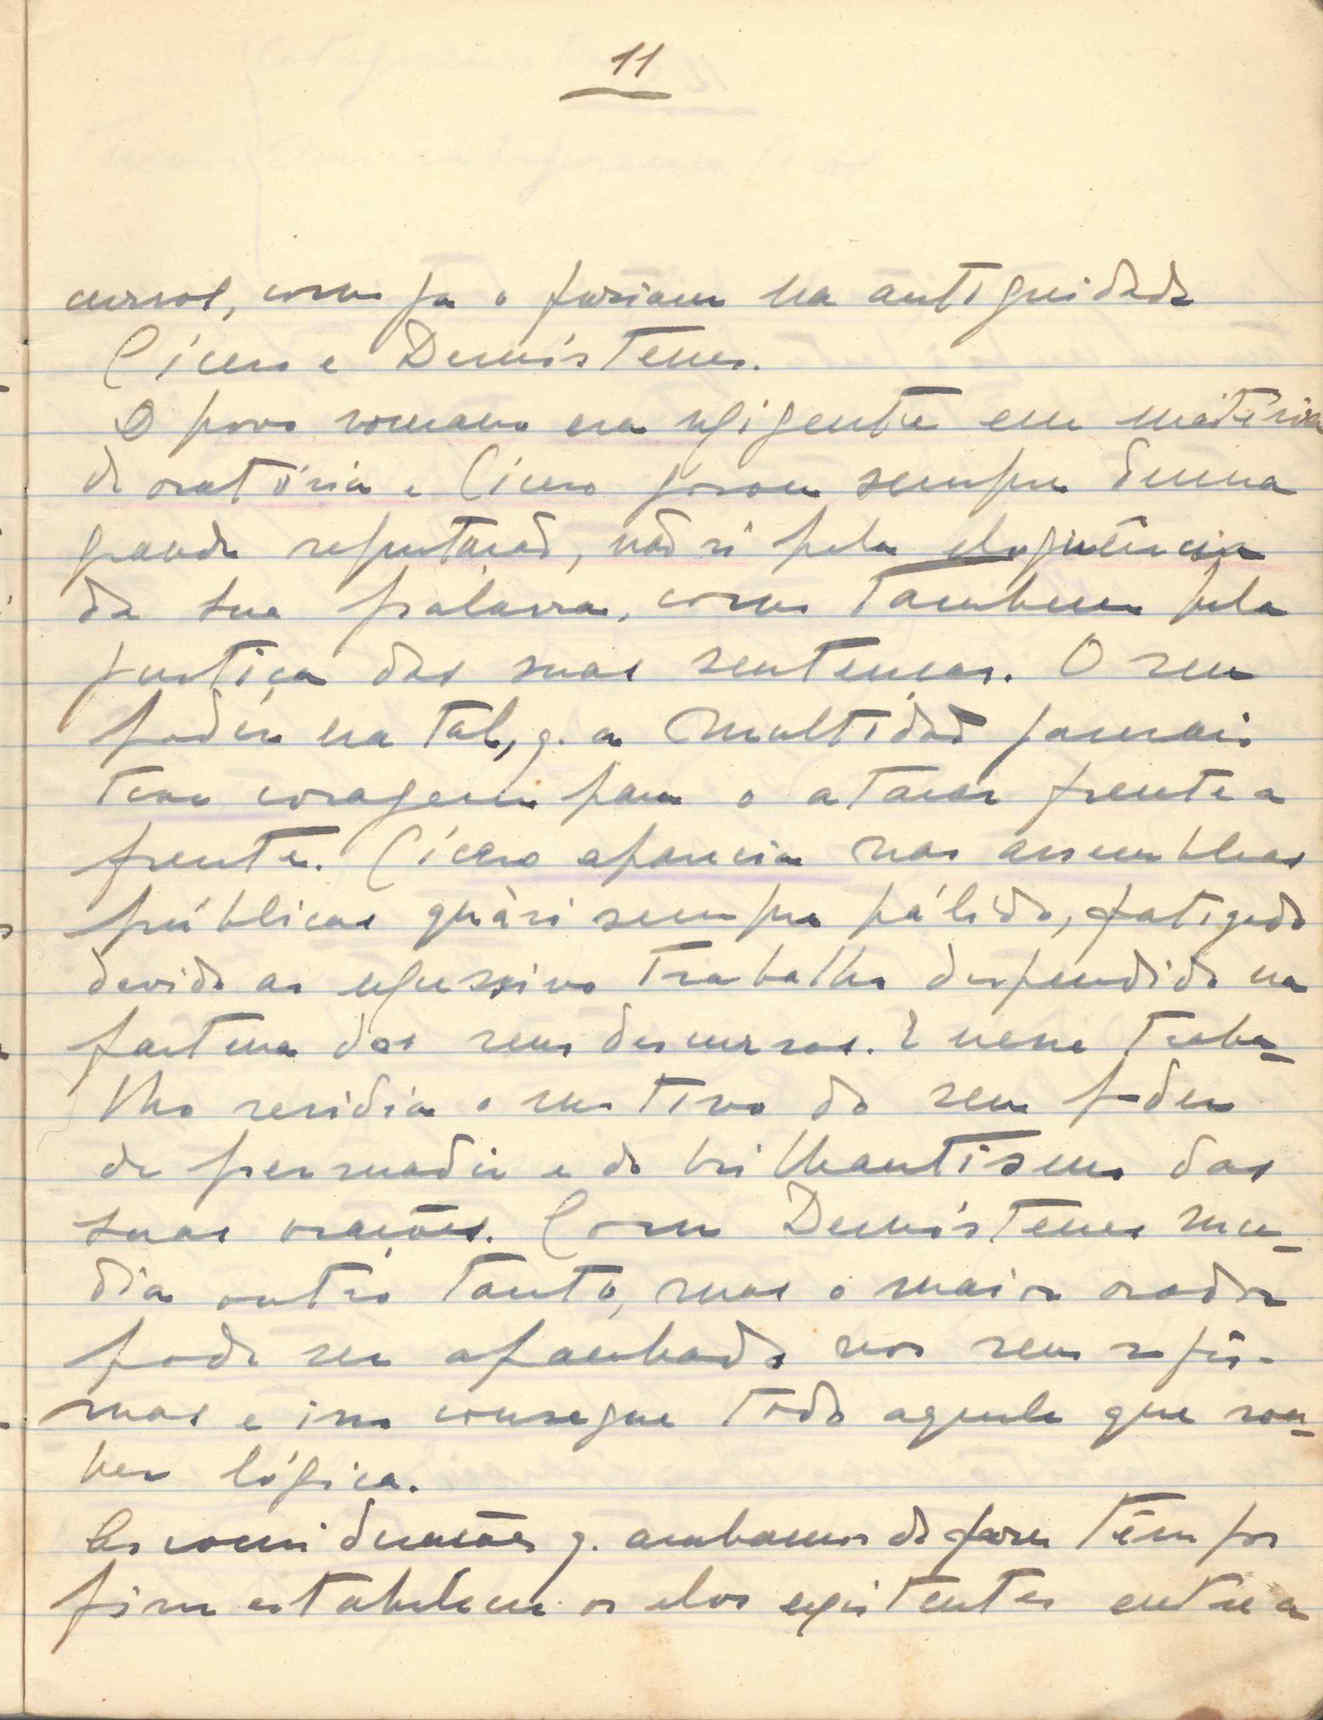 11
cursos, como já o faziam na antiguidade
Cícero e Demóstenes.
O povo romano era exigente em matéria
de oratória e Cícero gosou sempre duma
grande reputacão, não só pela eloquência
da sua palavra, como tambem pela
justiça das suas sentencas. O seu
poder era tal, q. a multidão jamais
teve coragem para o atacar frente a
frente. Cícero aparecia nas assembleas
públicas quàsi sempre pálido, fatigado
devido ao excessivo trabalho despendido na
factura dos seus discursos. E nesse traba-
lho residia o motivo do seu poder
de persuadir e do brilhantismo das
suas orações. Com Demóstenes suce-
dia outro tanto, mas o maior orador
pode ser apanhado nos seus sofis-
mas e isso consegue todo aquele que sou-
ber lógica.
As considerações q. acabamos de fazer têm por
fim estabelecer os elos existentes entre a